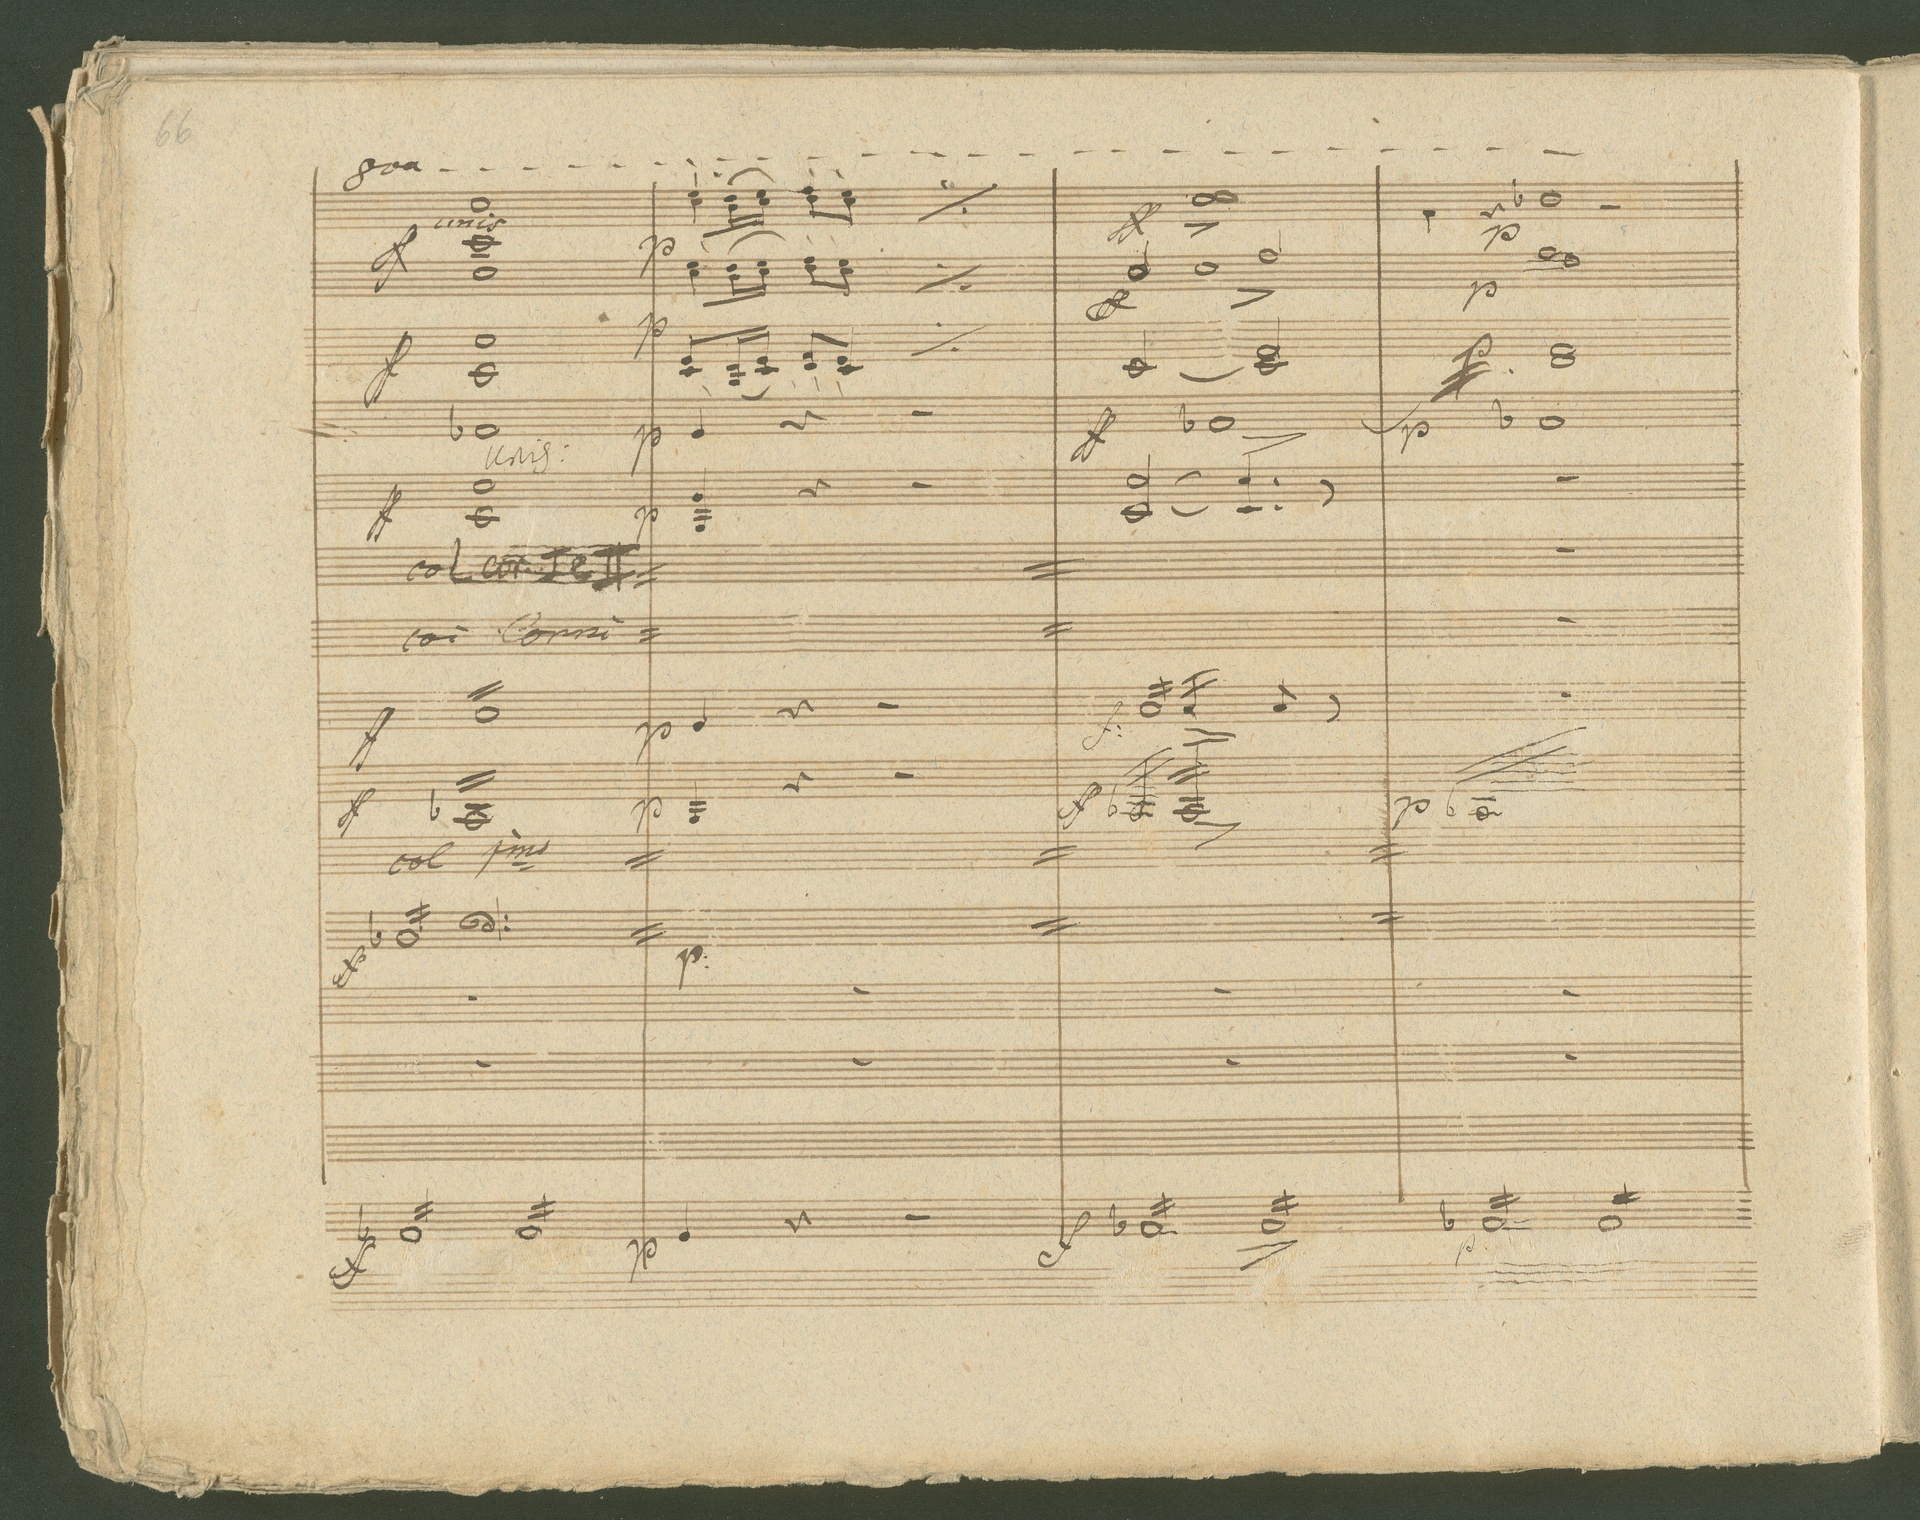 66
8va
unis
ff
p
ff
p
p
ff
p
ff
p
p
ff
p
unis:
ff
p
col cor. I e II
coi Corni
ff
p
f:
ff
p
ff
p
col pmo
ff
p:
ff
p
ff
p